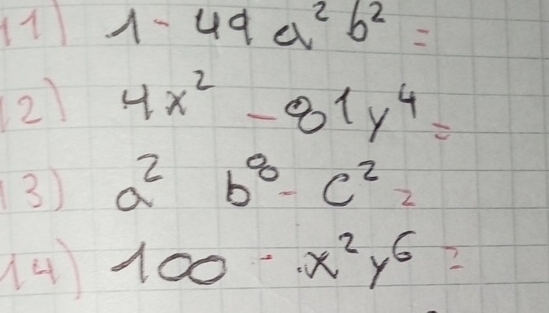 11) 1 - 49 a² b² =
12) 4x² - 81y⁴ =
13) a² b⁸ - c² =
14) 100 - x² y⁶ =